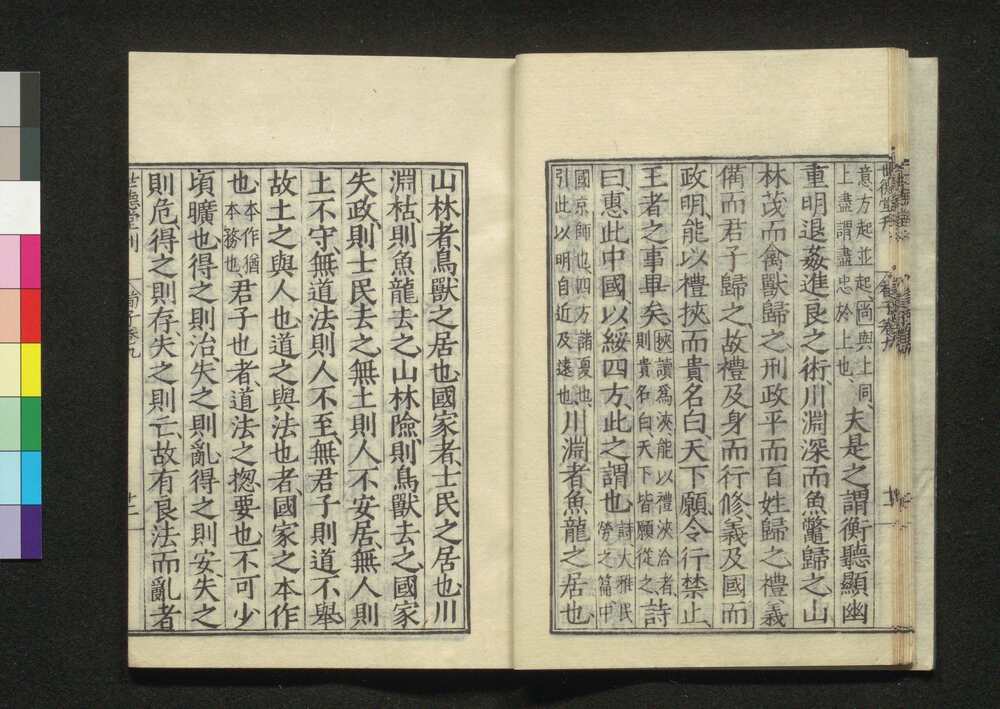 意方起並起尚與上同
上盡謂盡忠於上也夫是之謂衡聽顯幽
重明退姦進良之術川淵深而魚鼈歸之山
林茂而禽獸歸之刑政平而百姓歸之禮義
備而君子歸之故禮及身而行修義及國而
政明能以禮挾而貴名白天下願令行禁止
王者之事畢矣挾讀爲浹能以禮浹洽者則貴名白天下皆願從之詩
曰惠此中國以綏四方此之謂也詩大雅民勞之篇中
國京師也四方諸夏也引此以明自近及遠也川淵者魚龍之居也
山林者鳥獸之居也國家者士民之居也川
淵枯則魚龍去之山林險則鳥獸去之國家
失政則士民去之無土則人不安居無人則
土不守無道法則人不至無君子則道不舉
故土之與人也道之與法也者國家之本作
也本作猶本務也君子也者道法之揔要也不可少
頃曠也得之則治失之則亂得之則安失之
則危得之則存失之則亡故有良法而亂者
世德堂刊 荀子卷九